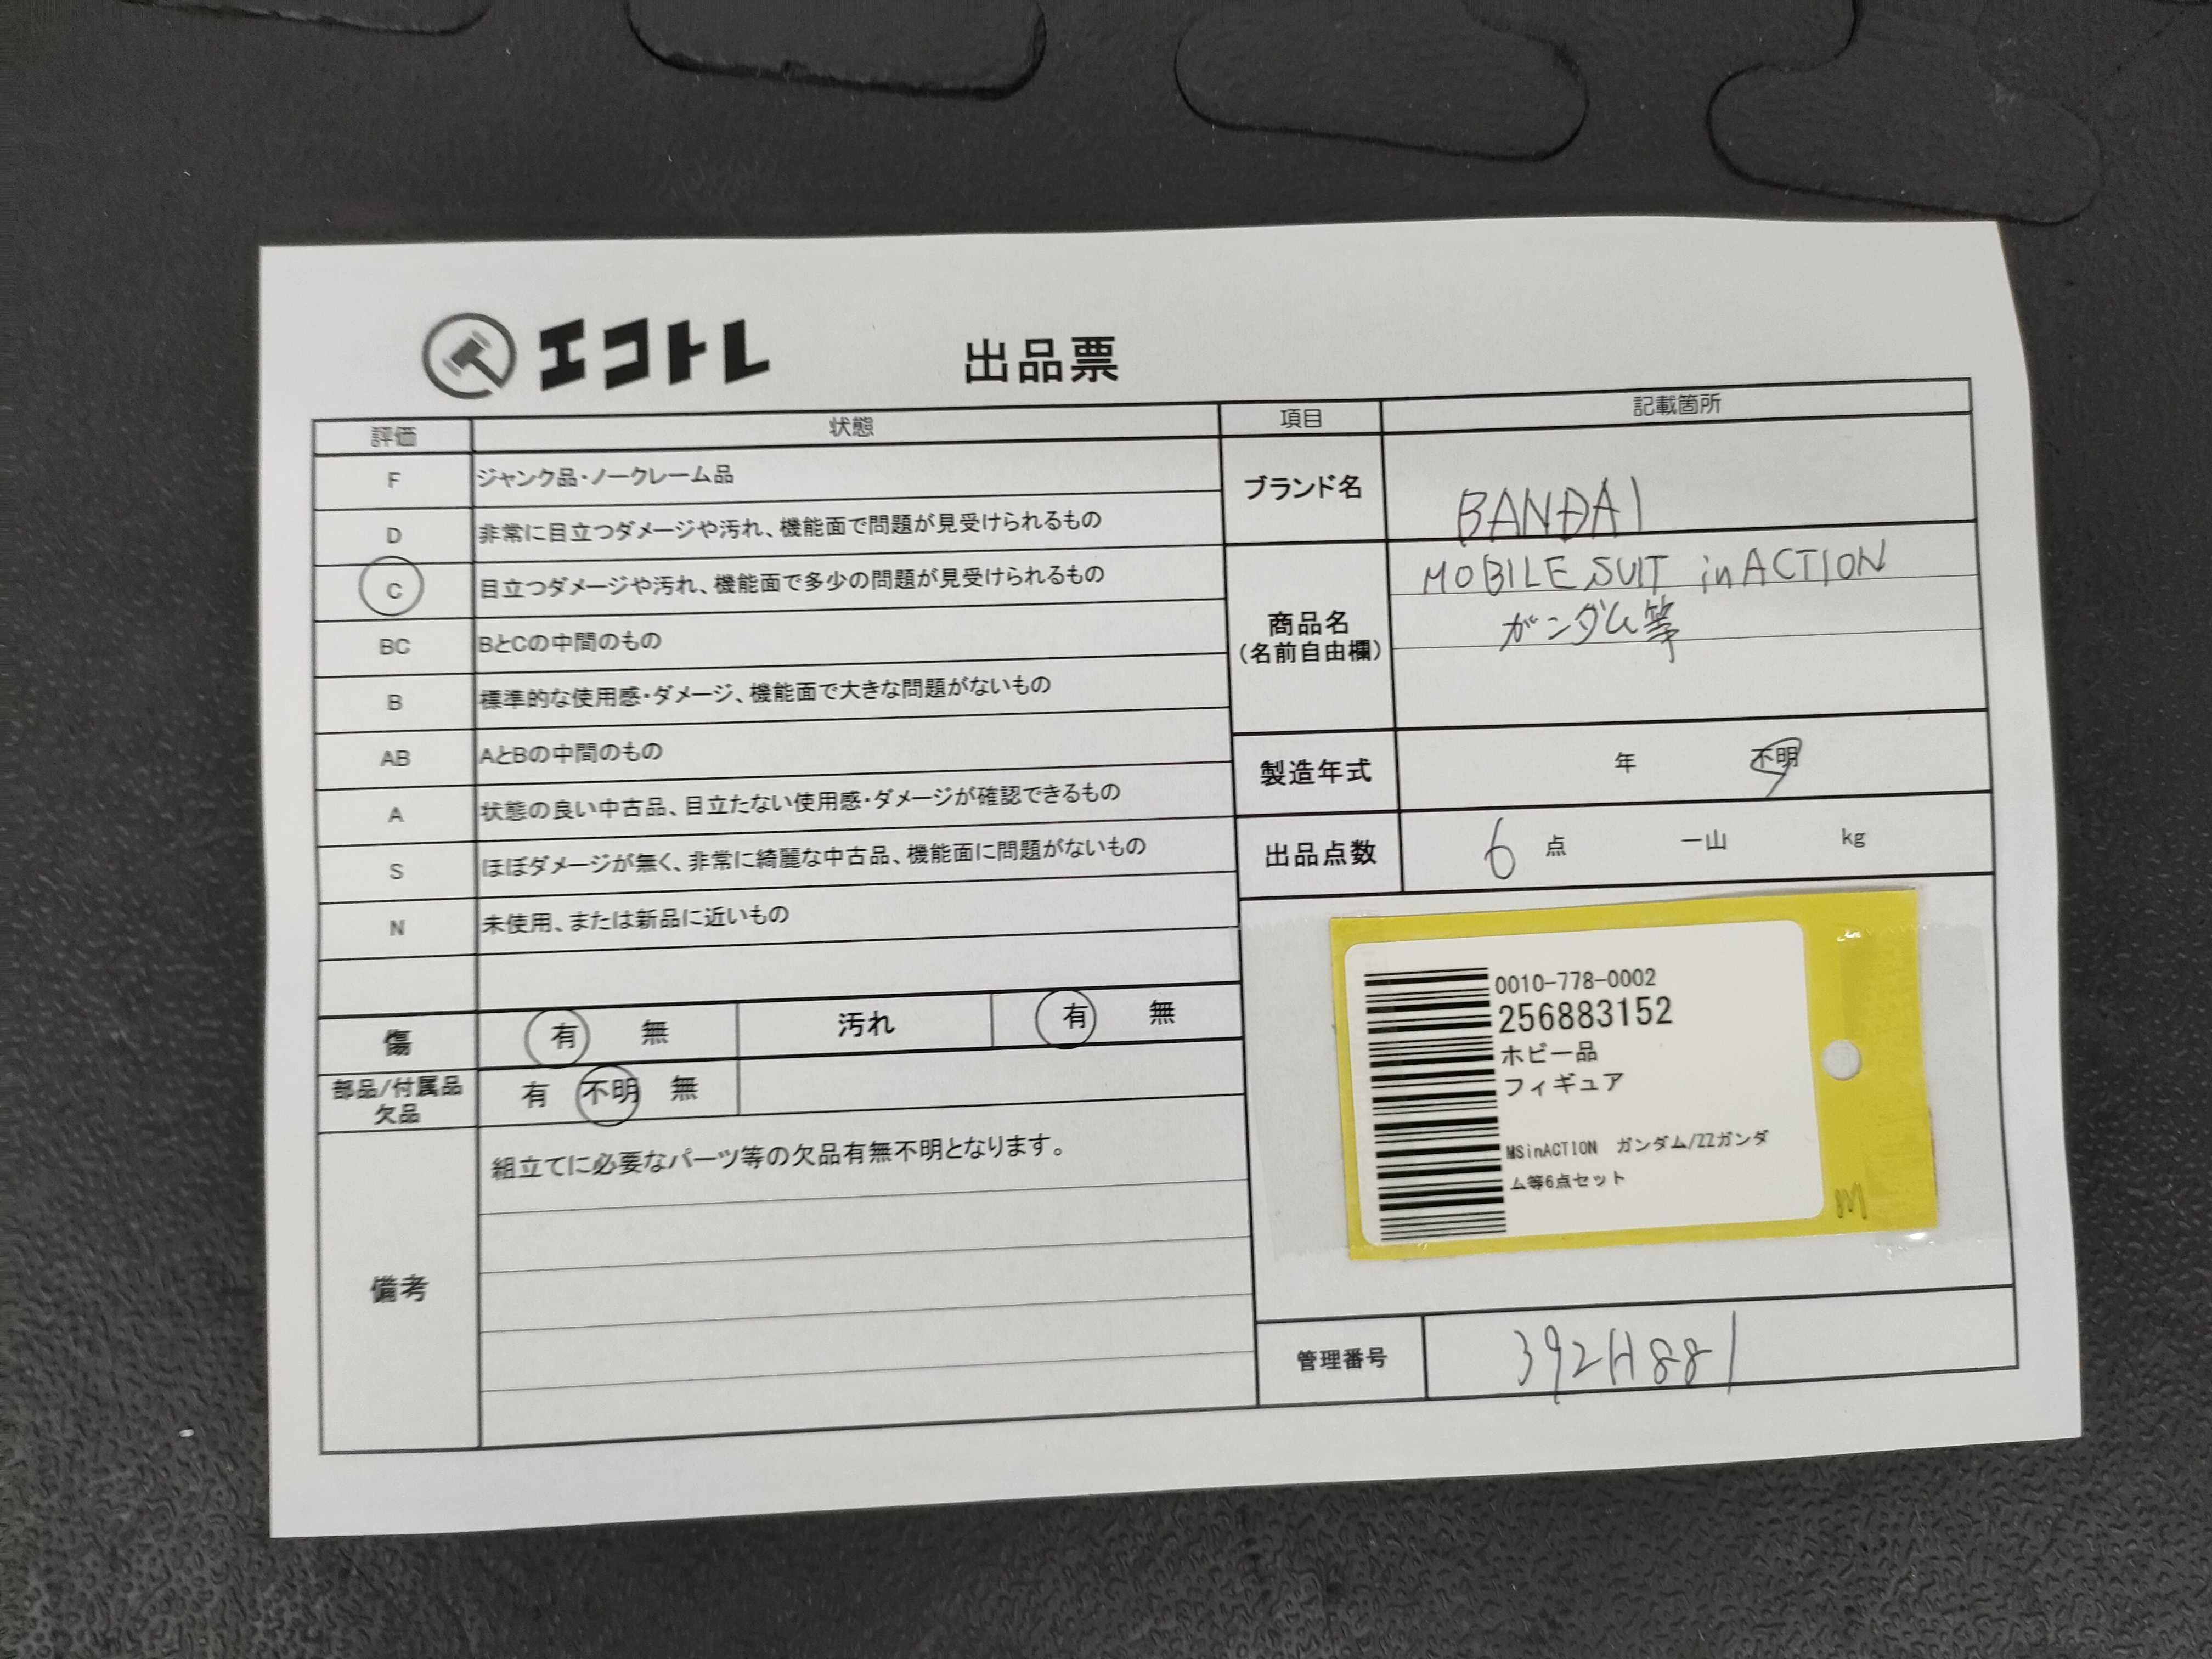 エコトレ 出品票
評価 状態
F ジャンク品・ノークレーム品
D 非常に目立つダメージや汚れ、機能面で問題が見受けられるもの
C 目立つダメージや汚れ、機能面で多少の問題が見受けられるもの
BC BとCの中間のもの
B 標準的な使用感・ダメージ、機能面で大きな問題がないもの
AB AとBの中間のもの
A 状態の良い中古品、目立たない使用感・ダメージが確認できるもの
S ほぼダメージが無く、非常に綺麗な中古品、機能面に問題がないもの
N 未使用、または新品に近いもの
傷 有 無 汚れ 有 無
部品/付属品
欠品
有 不明 無
備考
組立てに必要なパーツ等の欠品有無不明となります。
項目 記載箇所
ブランド名 BANDAI
商品名
(名前自由欄)
MOBILE SUIT in ACTION
ガンダム等
製造年式 年 不明
出品点数 6 点 一山 kg
0010-778-0002
256883152
ホビー品
フィギュア
MSinACTION ガンダム/ZZガンダ
ム等6点セット
M
管理番号 392H881